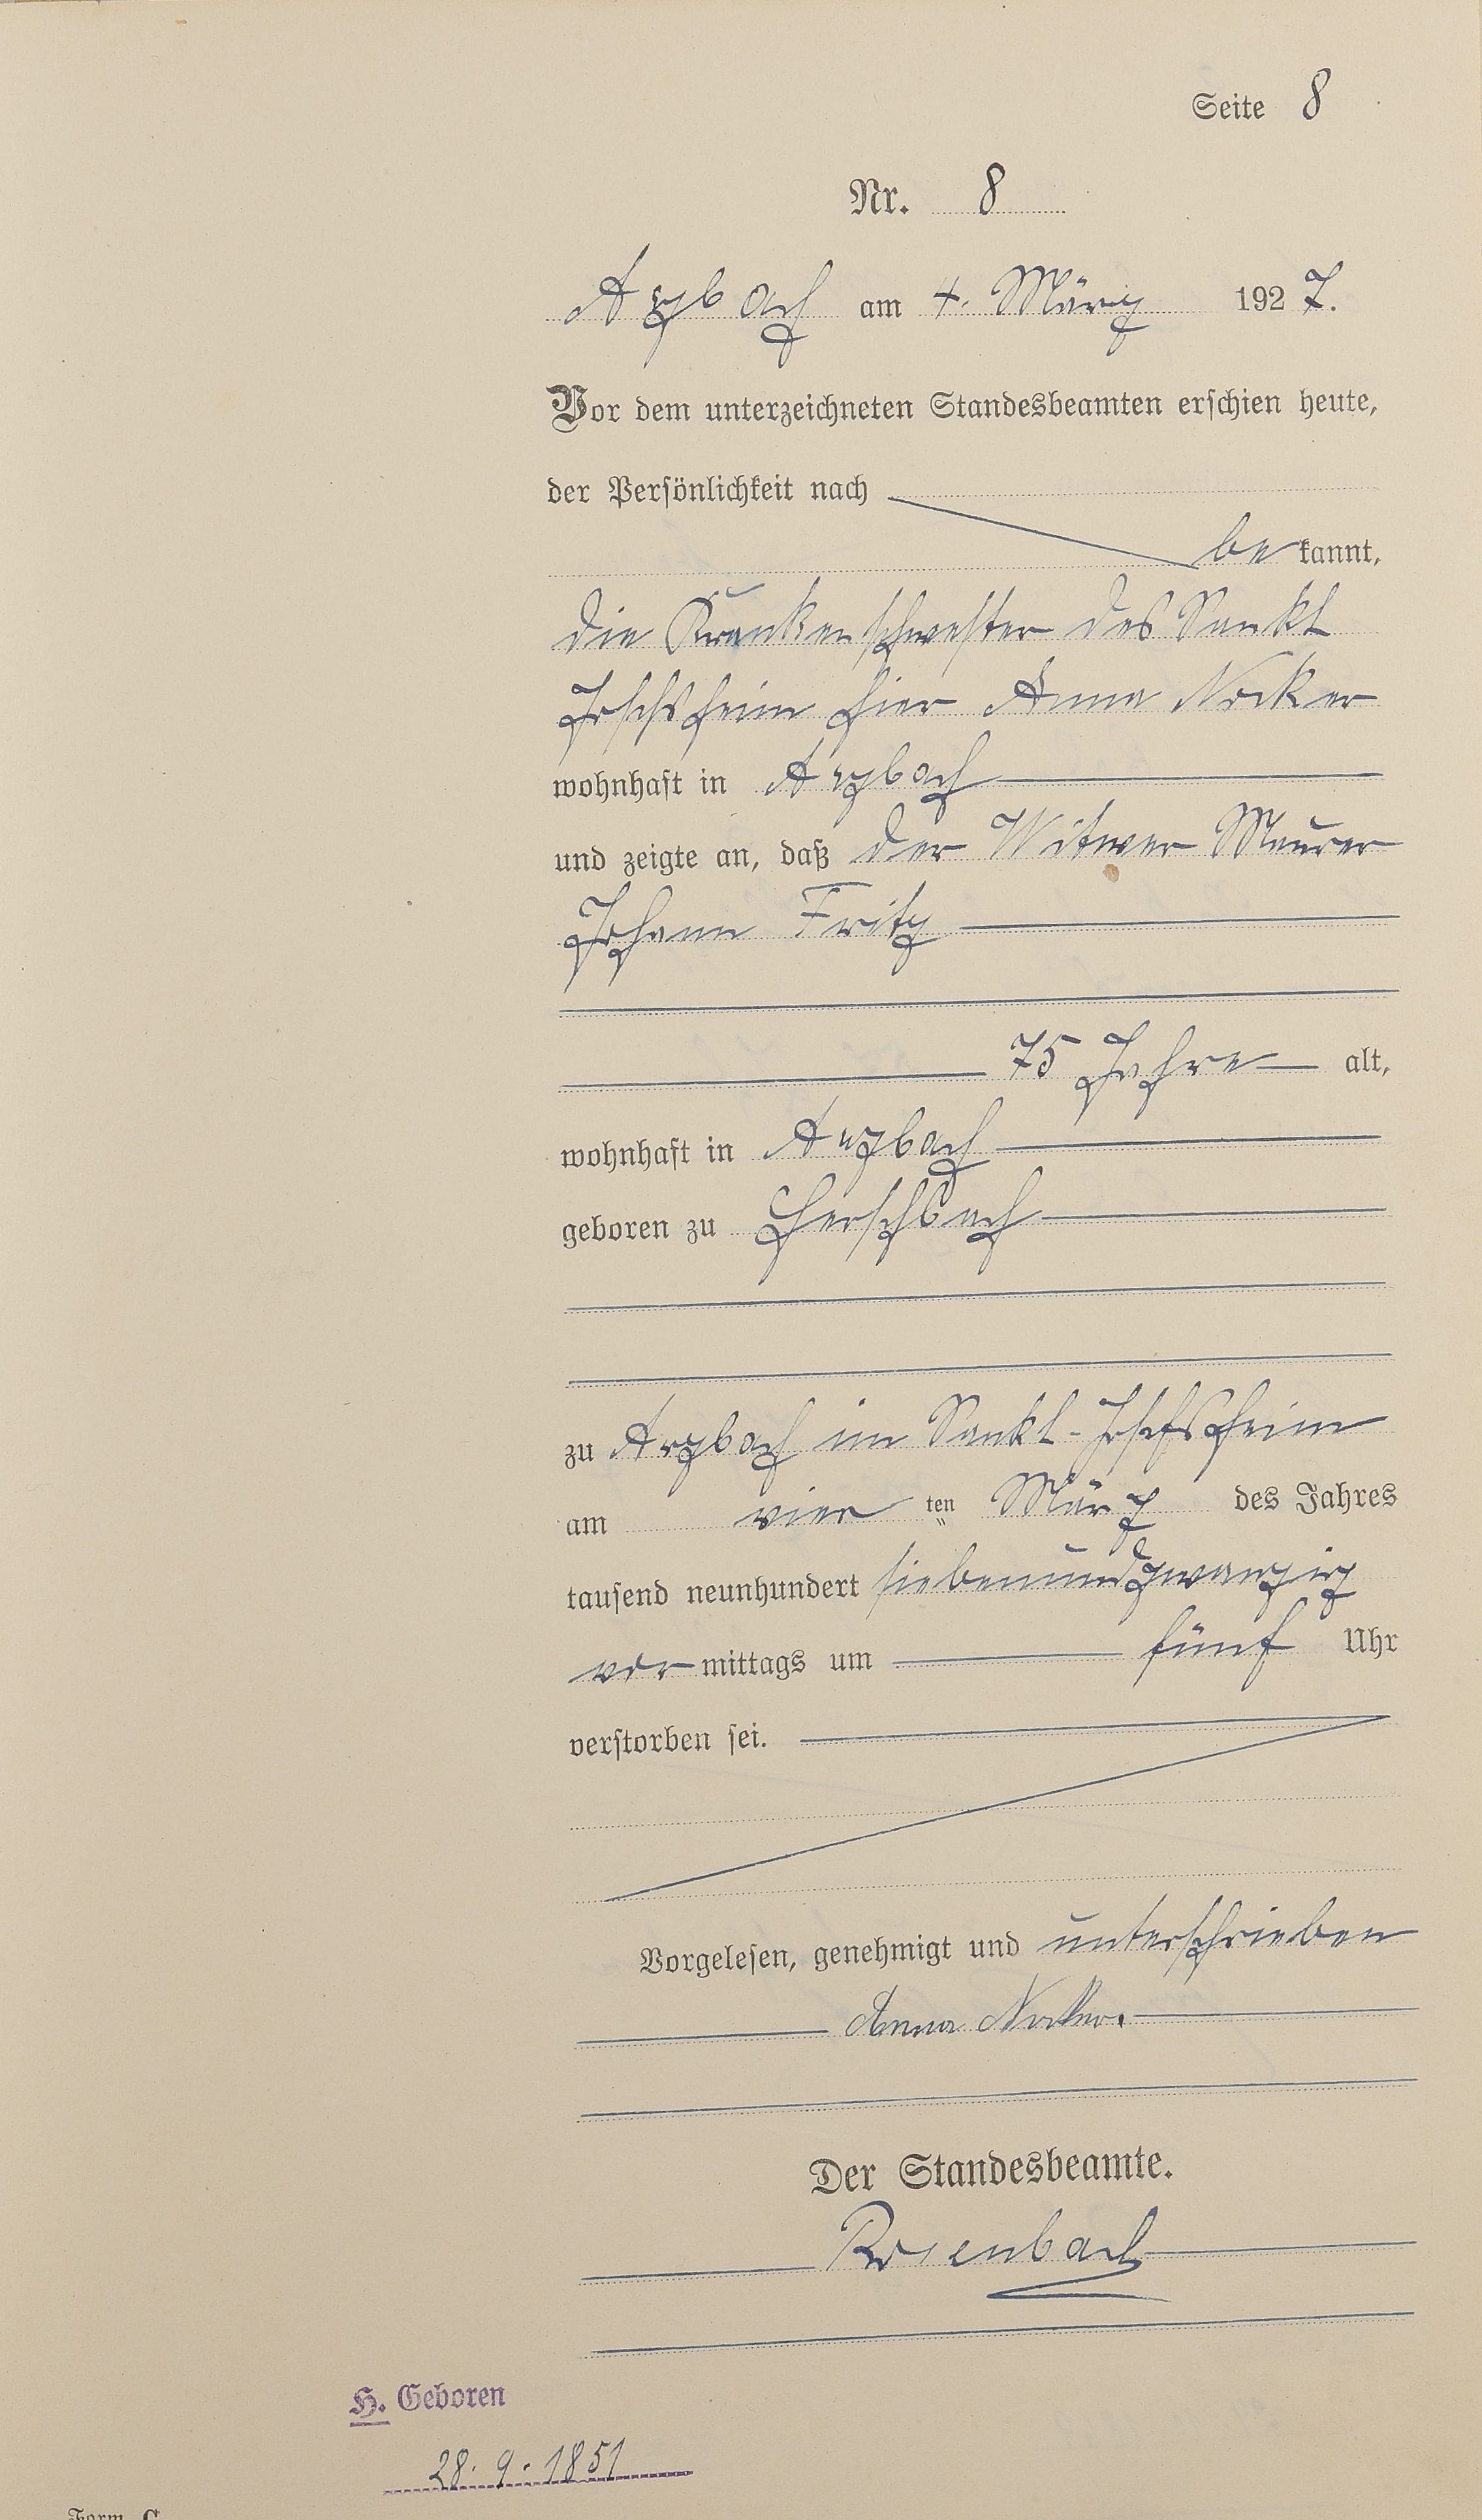 Seite 8
Nr. 8
Arzbach am 4. März 1927.
Vor dem unterzeichneten Standesbeamten erschien heute,
der Persönlichkeit nach
bekannt,
die Krankenschwester des Sankt
Josefsheim hier Anna Nocker
wohnhaft in Arzbach
und zeigte an, daß der Witwer Maurer
Johann Fritz
75 Jahre alt,
wohnhaft in Arzbach
geboren zu Herschbach
zu Arzbach im Sankt-Josefsheim
am vier ten März des Jahres
tausend neunhundert siebenundzwanzig
vormittags um fünf Uhr
verstorben sei.
Vorgelesen, genehmigt und unterschrieben
Anna Nocker.
Der Standesbeamte.
Rosenbach
H. Geboren
28.9.1851
Form. C